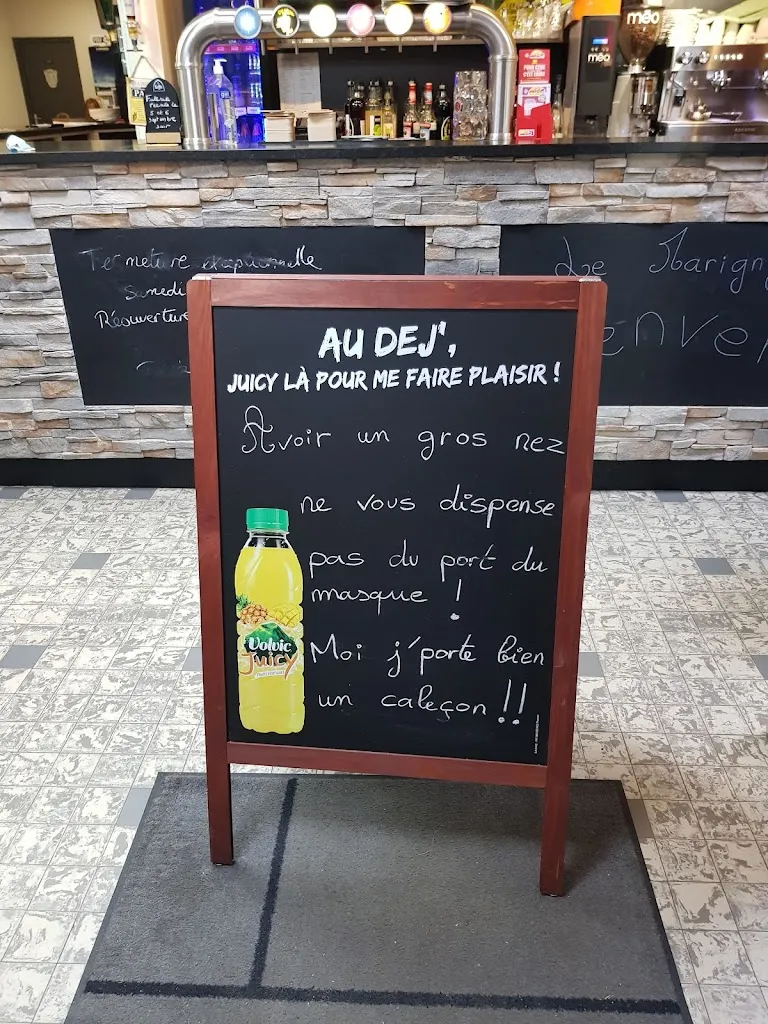 méo
méo
Fermeture exceptionnelle
Samedi
Réouverture
Le Marigny
AU DEJ',
JUICY LÀ POUR ME FAIRE PLAISIR !
Avoir un gros nez
ne vous dispense
pas du port du
masque !
Moi j'porte bien
un caleçon !!
Volvic
Juicy